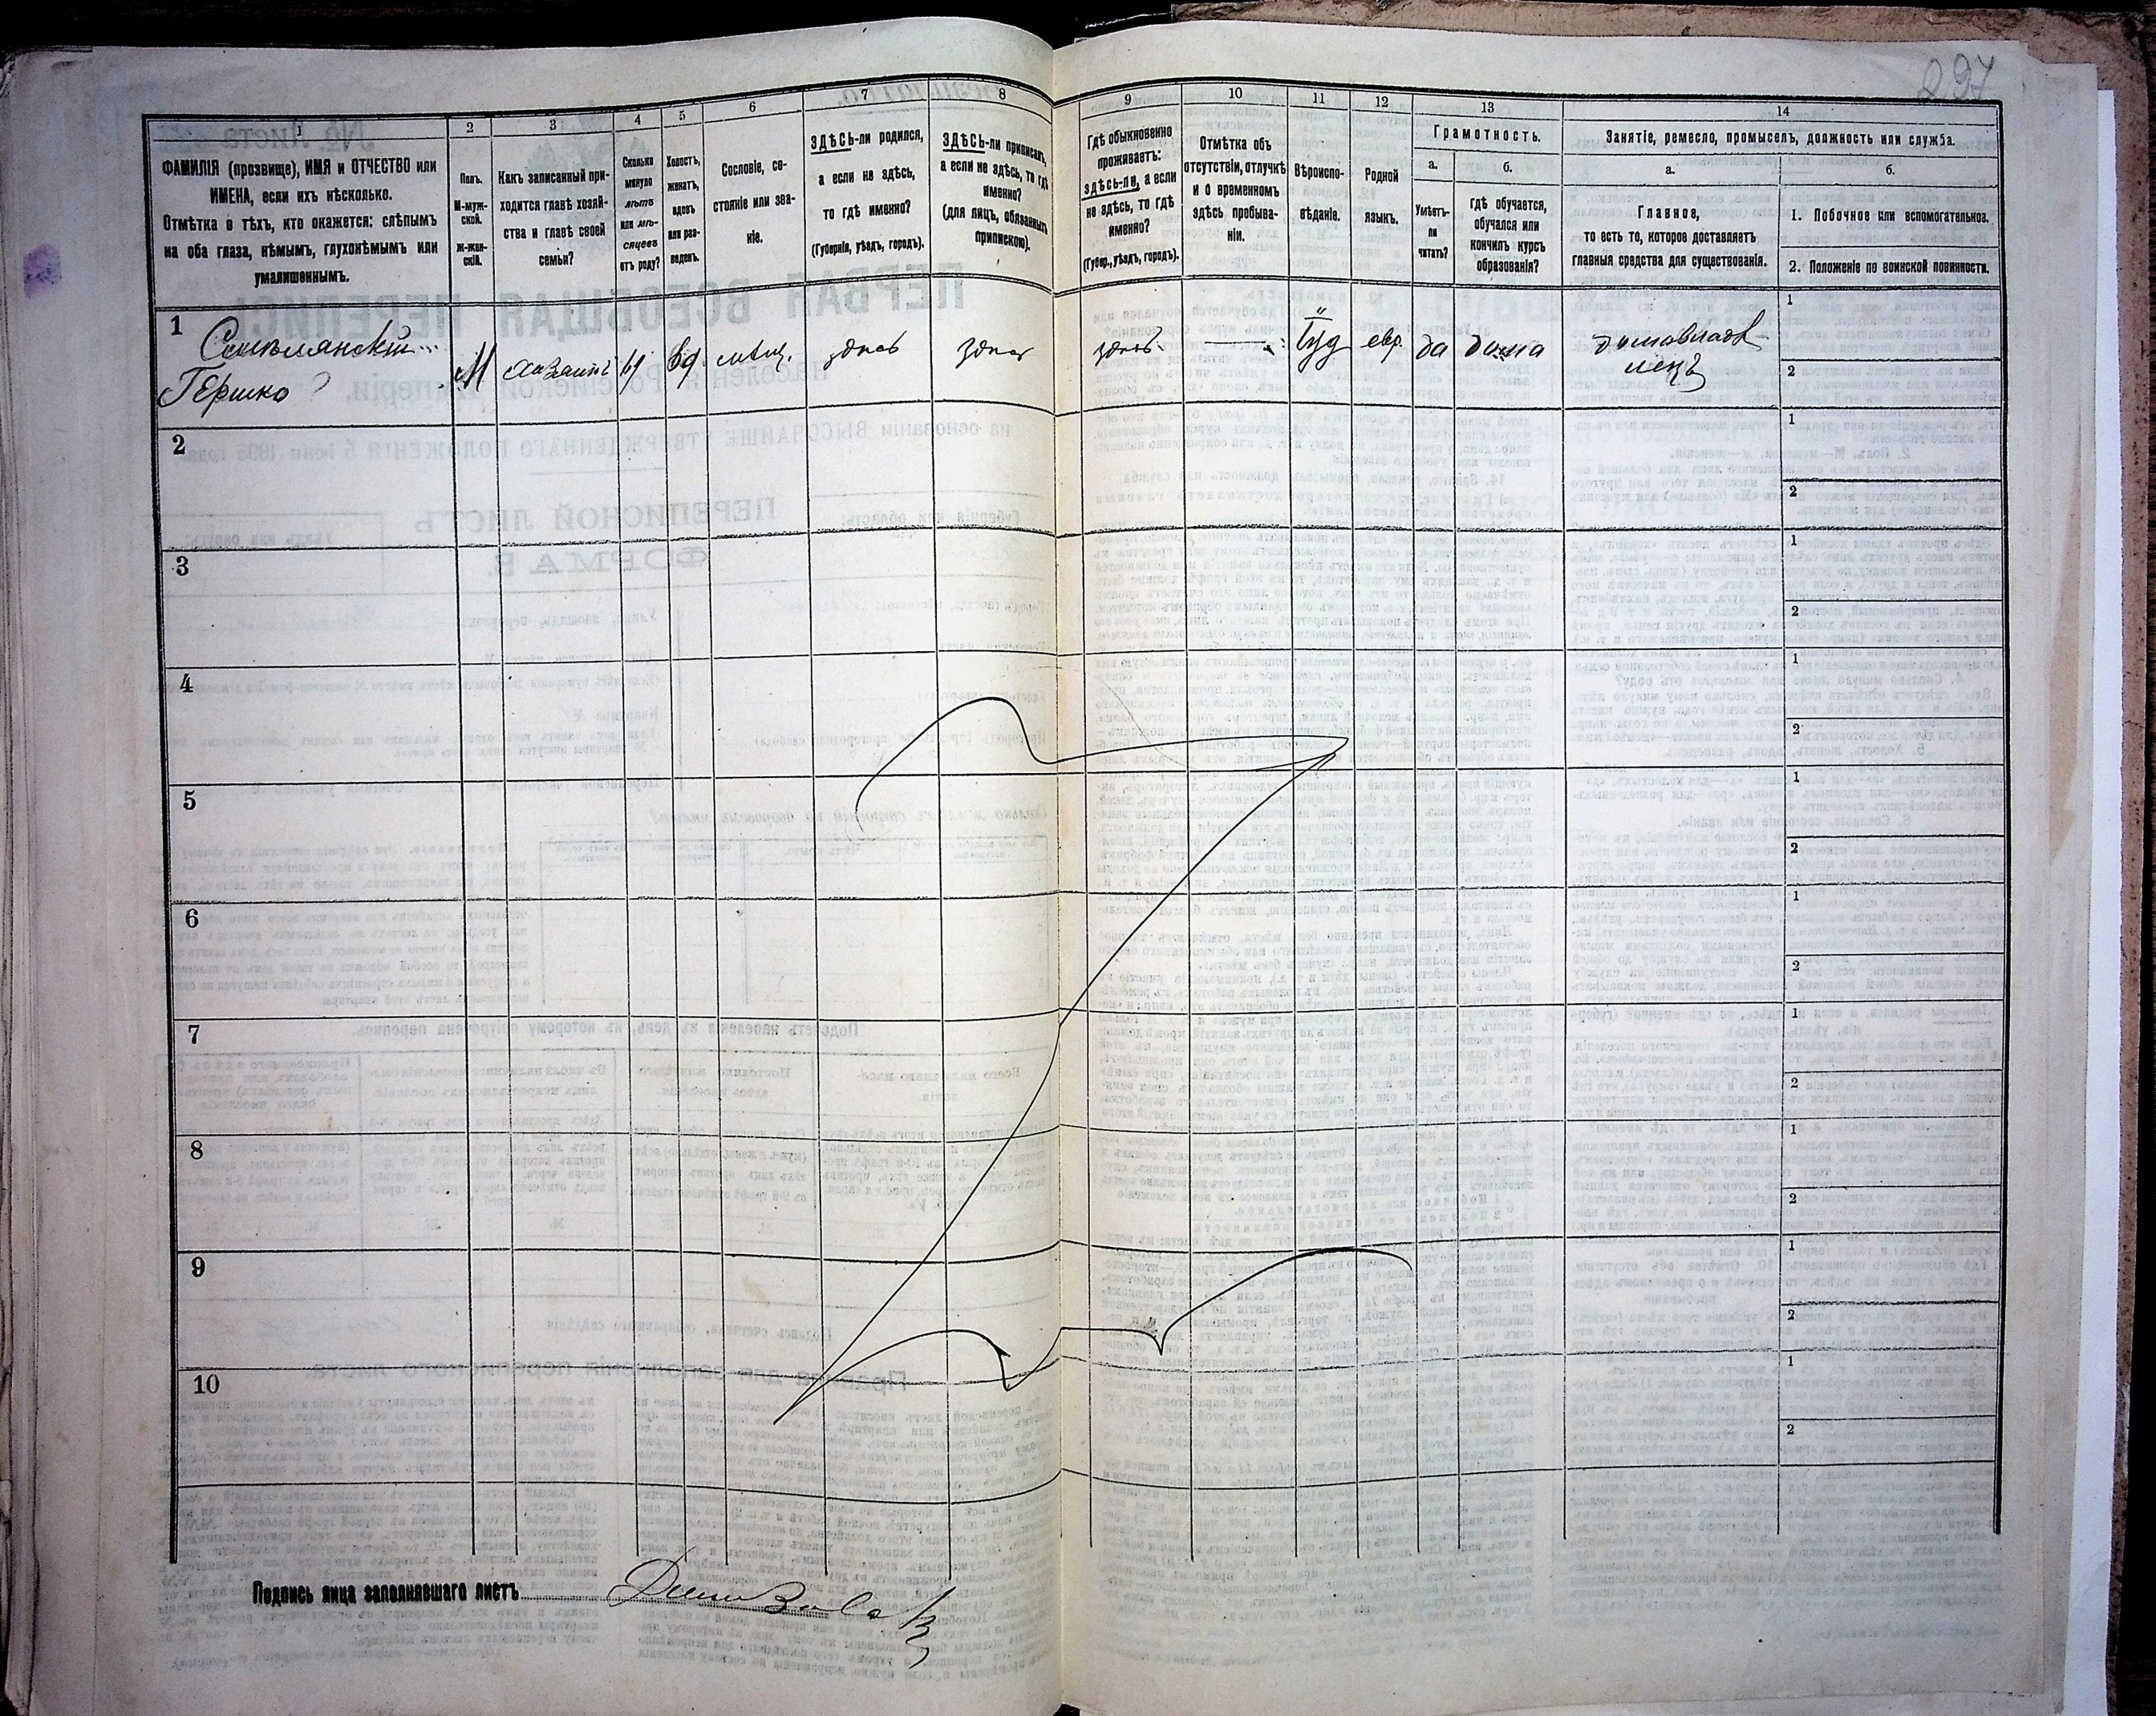 297
1
2
3
4
5
6
7
8
9
10
11
12
13
14
ФАМИЛІЯ (прозвище), ИМЯ и ОТЧЕСТВО или
ИМЕНА, если ихъ нѣсколько.
Отмѣтка о тѣхъ, кто окажется: слѣпымъ
на оба глаза, нѣмымъ, глухонѣмымъ или
умалишеннымъ.
Полъ.
М-муж-
ской.
Ж-жен-
скій.
Какъ записанный при-
ходится главѣ хозяй-
ства и главѣ своей
семьи?
Сколько
минуло
лѣтъ
или мѣ-
сяцевъ
отъ роду?
Холостъ,
женатъ,
вдовъ
или раз-
веденъ.
Сословіе, со-
стояніе или зва-
ніе.
ЗДѢСЬ-ли родился,
а если не здѣсь,
то гдѣ именно?
(Губернія, уѣздъ, городъ).
ЗДѢСЬ-ли приписанъ,
а если не здѣсь, то гдѣ
именно?
(для лицъ, обязанныхъ
припискою).
Гдѣ обыкновенно
проживаетъ:
здѣсь-ли, а если
не здѣсь, то гдѣ
именно?
(Губер., уѣздъ, городъ).
Отмѣтка объ
отсутствіи, отлучкѣ
и о временномъ
здѣсь пребыва-
ніи.
Вѣроиспо-
вѣданіе.
Родной
языкъ.
Грамотность.
а.
Умѣетъ-
ли
читать?
б.
гдѣ обучается,
обучался или
кончилъ курсъ
образованія?
Занятіе, ремесло, промыселъ, должность или служба.
а.
Главное,
то есть то, которое доставляетъ
главныя средства для существованія.
б.
1. Побочное или вспомогательное.
2. Положеніе по воинской повинности.
1
Гершко
М
хозяинъ
69
вд
мѣщ.
здѣсь
здѣсь
здѣсь
Іуд
евр.
да
дома
домовладѣ
лецъ
1
2
2
1
2
3
1
2
4
1
2
5
1
2
6
1
2
7
1
2
8
1
2
9
1
2
10
1
2
Подпись лица заполнявшаго листъ